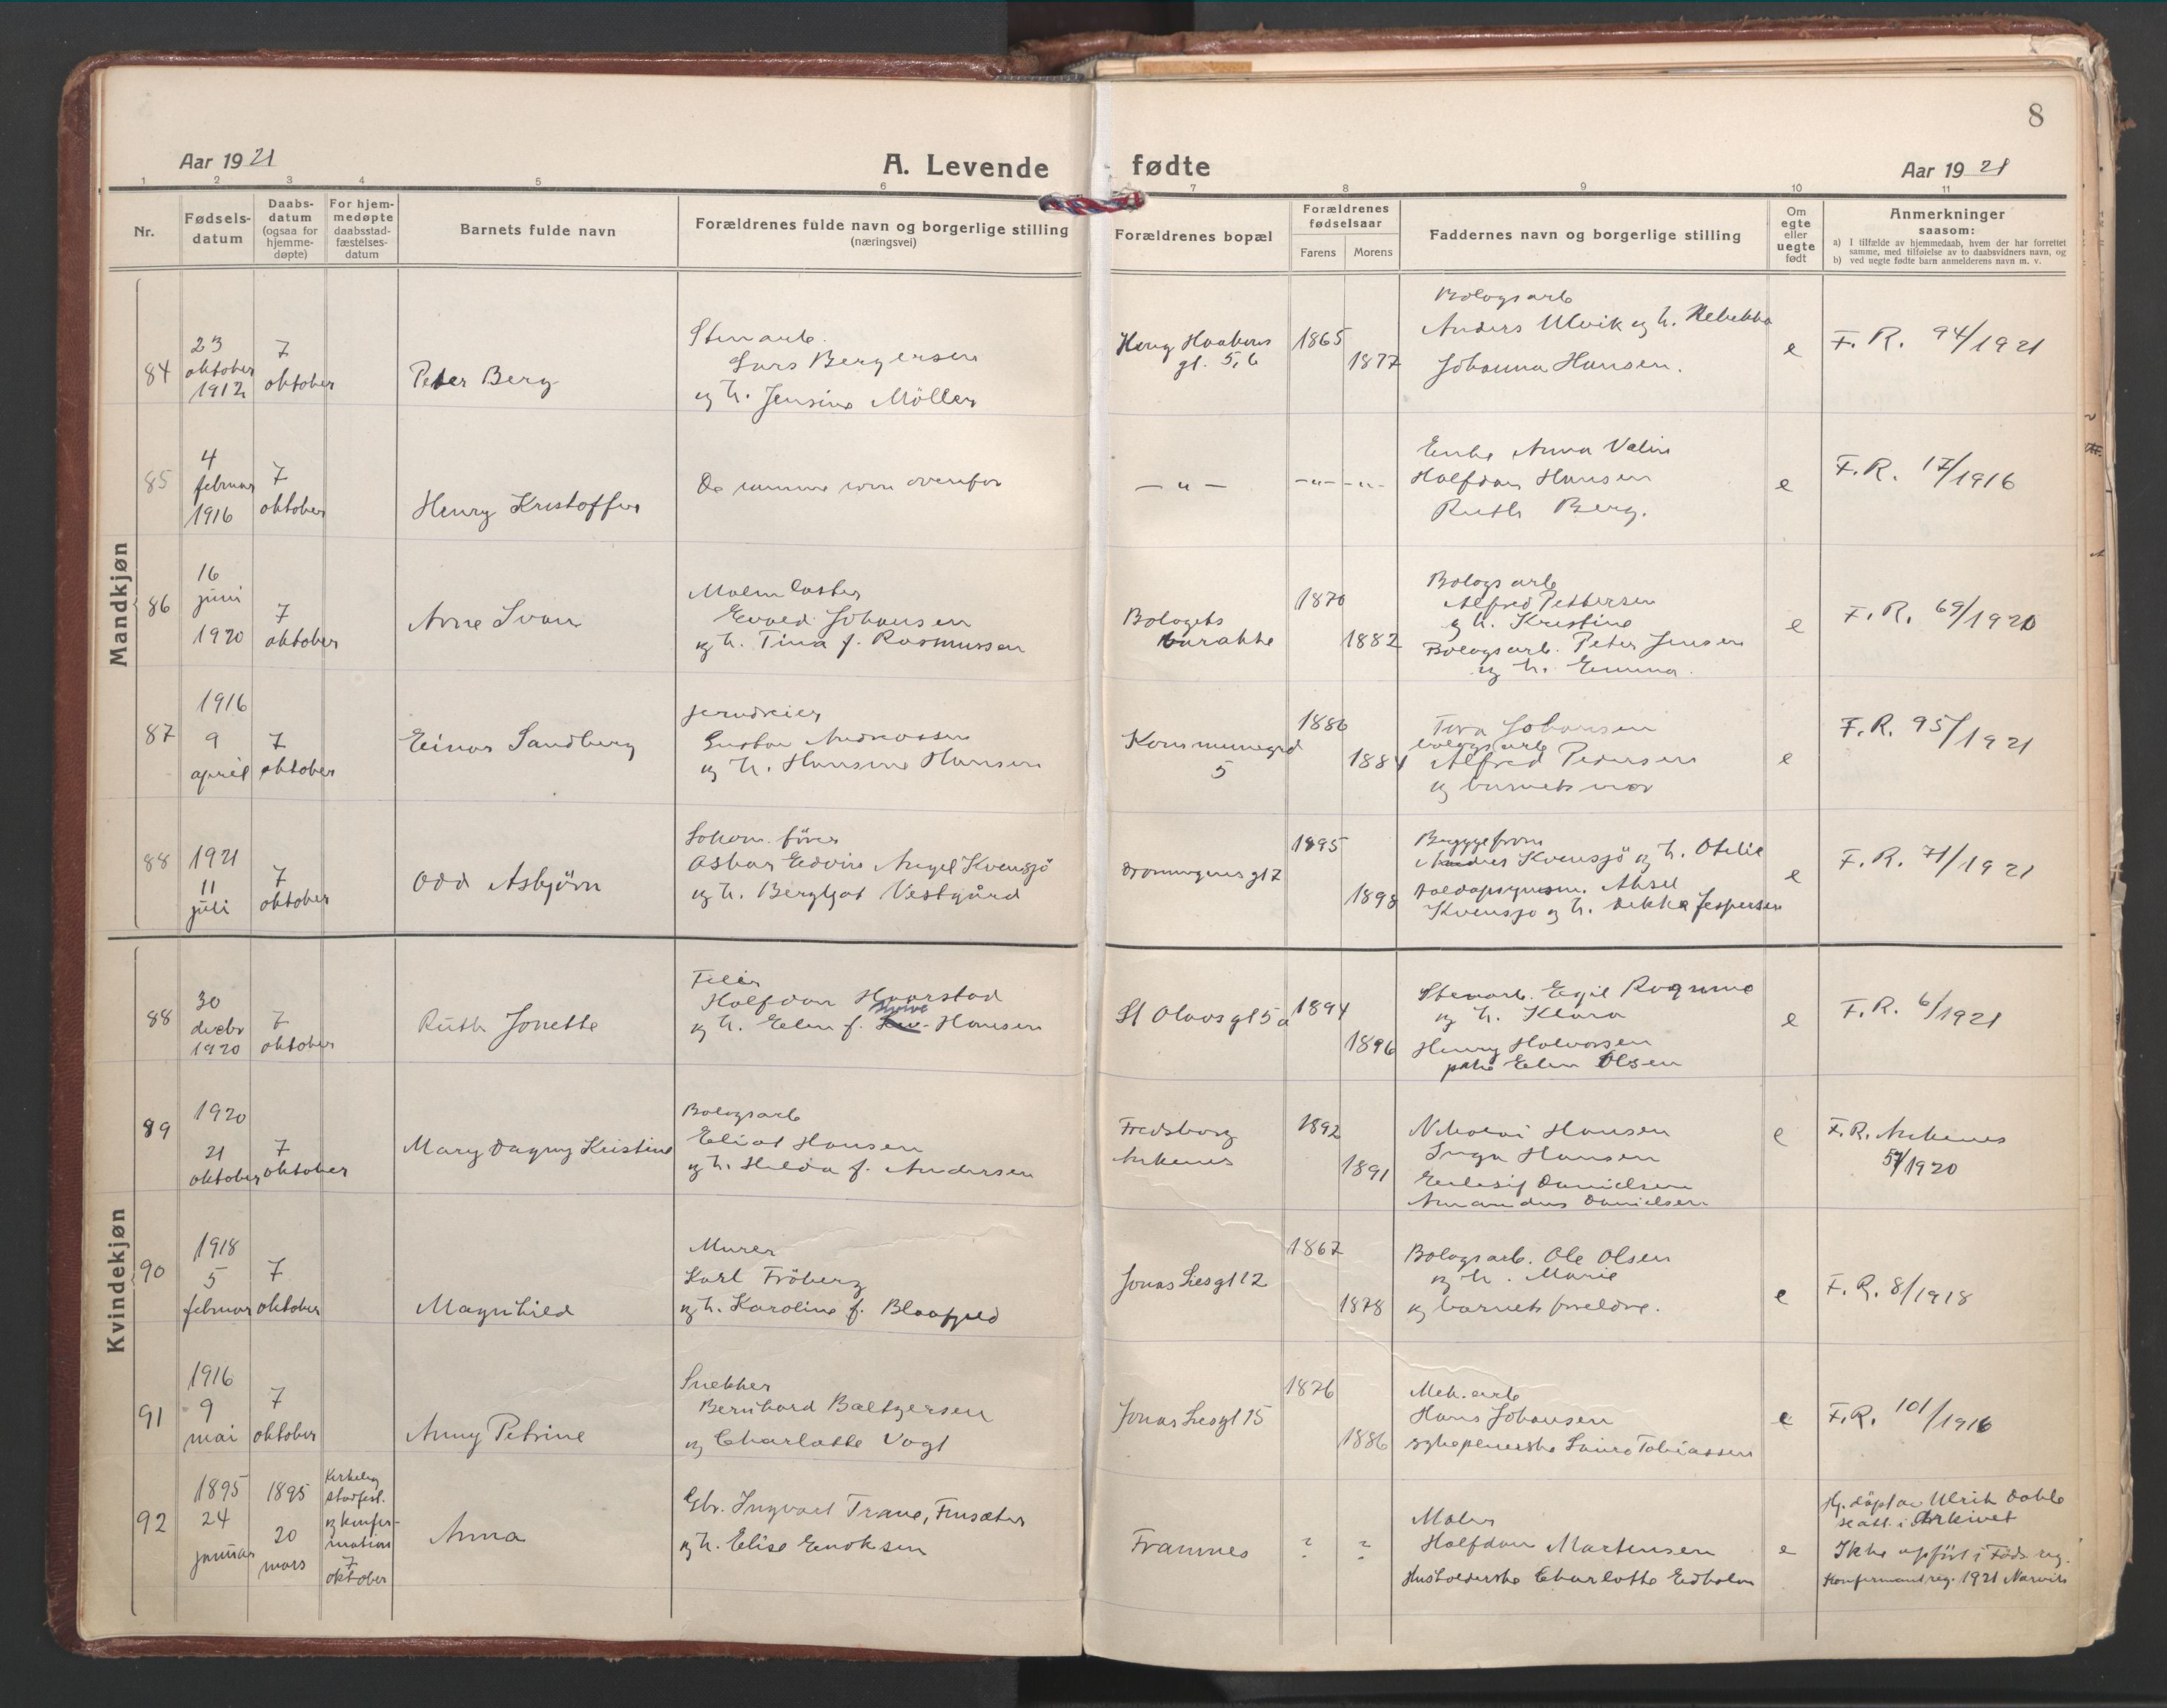 8
Aar 1921
A. Levende fødte
Aar 1921
1 2 3 4 5 6 7 8 9 10 11
Nr.
Fødsels-
datum
Daabs-
datum
(ogsaa for
hjemme-
døpte)
For hjem-
medøpte
daabsstad-
fæstelses-
datum
Barnets fulde navn
Forældrenes fulde navn og borgerlige stilling
(næringsvei)
Forældrenes bopæl
Forældrenes
fødselsaar
Farens
Morens
Faddernes navn og borgerlige stilling
Om
egte
eller
uegte
født
Anmerkninger
saasom:
a) I tilfælde av hjemmedaab, hvem der har forrettet
samme, med tilføielse av to daabsvidners navn, og
b) ved uegte fødte barn anmelderens navn m. v.
Mandkjøn
84
23
oktober
1912
7
oktober
Peter Berg
Stenarb.
Lars Bergersen
og h. Jensine Möller
Kong Haakons
gt. 5,6
1865
1877
Bologsarb
Anders Ulvik og h. Rebekka
Johanna Hansen.
e
F. R. 94/1921
85
4
februar
1916
7
oktober
Henry Kristoffer
De samme som ovenfor
— " —
-"- -"-
Enke Anna Valin
Halfdan Hansen
Ruth Berg.
e
F. R. 17/1916
86
16
juni
1920
7
oktober
Arne Ivan
Malmlaster
Evald Johansen
og h. Tina f. Rasmussen
Bologets
barakke
1870
1882
Bologsarb
Alfred Pettersen
og h. Kristine
Bologsarb. Peter Jensen
og h. Emma.
e
F. R. 69/1920
87
1916
9
april
7
oktober
Einar Sandberg
Gustav Andreassen
og h. Hansine Hansen
Kommunegrd
5
1886
1884
Tora Johansen
bologsarb
Alfred Pedersen
og barnets mor
e
F. R. 95/1921
88
1921
11
juli
7
oktober
Odd Asbjörn
Lokom. förer
Oskar Edvin Angel Kvensjö
og h. Bergljot Vestgård
Dronningens gt 7
1895
1898
Kvensjö og h. Otelie
Aksel
Kvensjo og h. Jespersen
e
F. R. 71/1921
Kvindekjøn
88
30
decbr
1920
7
oktober
Ruth Jonette
Filer
Halfdan Haarstad
og h. Elen f. Hansen
St Olavs gt 5a
1894
1896
Stenarb. Egil Rognmo
og h. Klara
Henry Halvorsen
pike Elen Olsen
e
F. R. 6/1921
89
1920
21
oktober
7
oktober
Mary Dagny Kristine
Bologsarb
Eliot Hansen
og h. Hilda f. Andersen
Fredsborg
Ankenes
1892
1891
Nikolai Hansen
Inga Hansen
Danielsen
Amandus Danielsen
e
F. R. Ankenes
57/1920
90
1918
5
februar
7
oktober
Magnhild
Murer
Karl Fröberg
og h. Karoline f. Blaafjeld
Jonas Liesgt 12
1867
1878
Bologsarb. Ole Olsen
og h. Marie
og barnets foreldre.
e
F. R. 8/1918
91
1916
9
mai
7
oktober
Anny Petrine
Snekker
Bernhard Baltzersen
og Charlotte Vogt
Jonas Liesgt 15
1876
1886
Mek. arb
Hans Johansen
sykepleierske Laura Tobiassen
e
F. R. 101/1916
92
1895
24
januar
1895
20
mars
Kirkelig
stadfest.
og konfir-
mation
7
oktober
Anna
Gbr. Ingvart Trane, Finsæter
og h. Elise Enoksen
Framnes
? ?
Maler
Halfdan Martinsen
Husholderske Charlotte Edholm
e
Hj. döpt av Ulrik Dahle
se att. i Arkivet
Ikke opfört i Föds. reg.
Konfirmantreg. 1921 Narvik